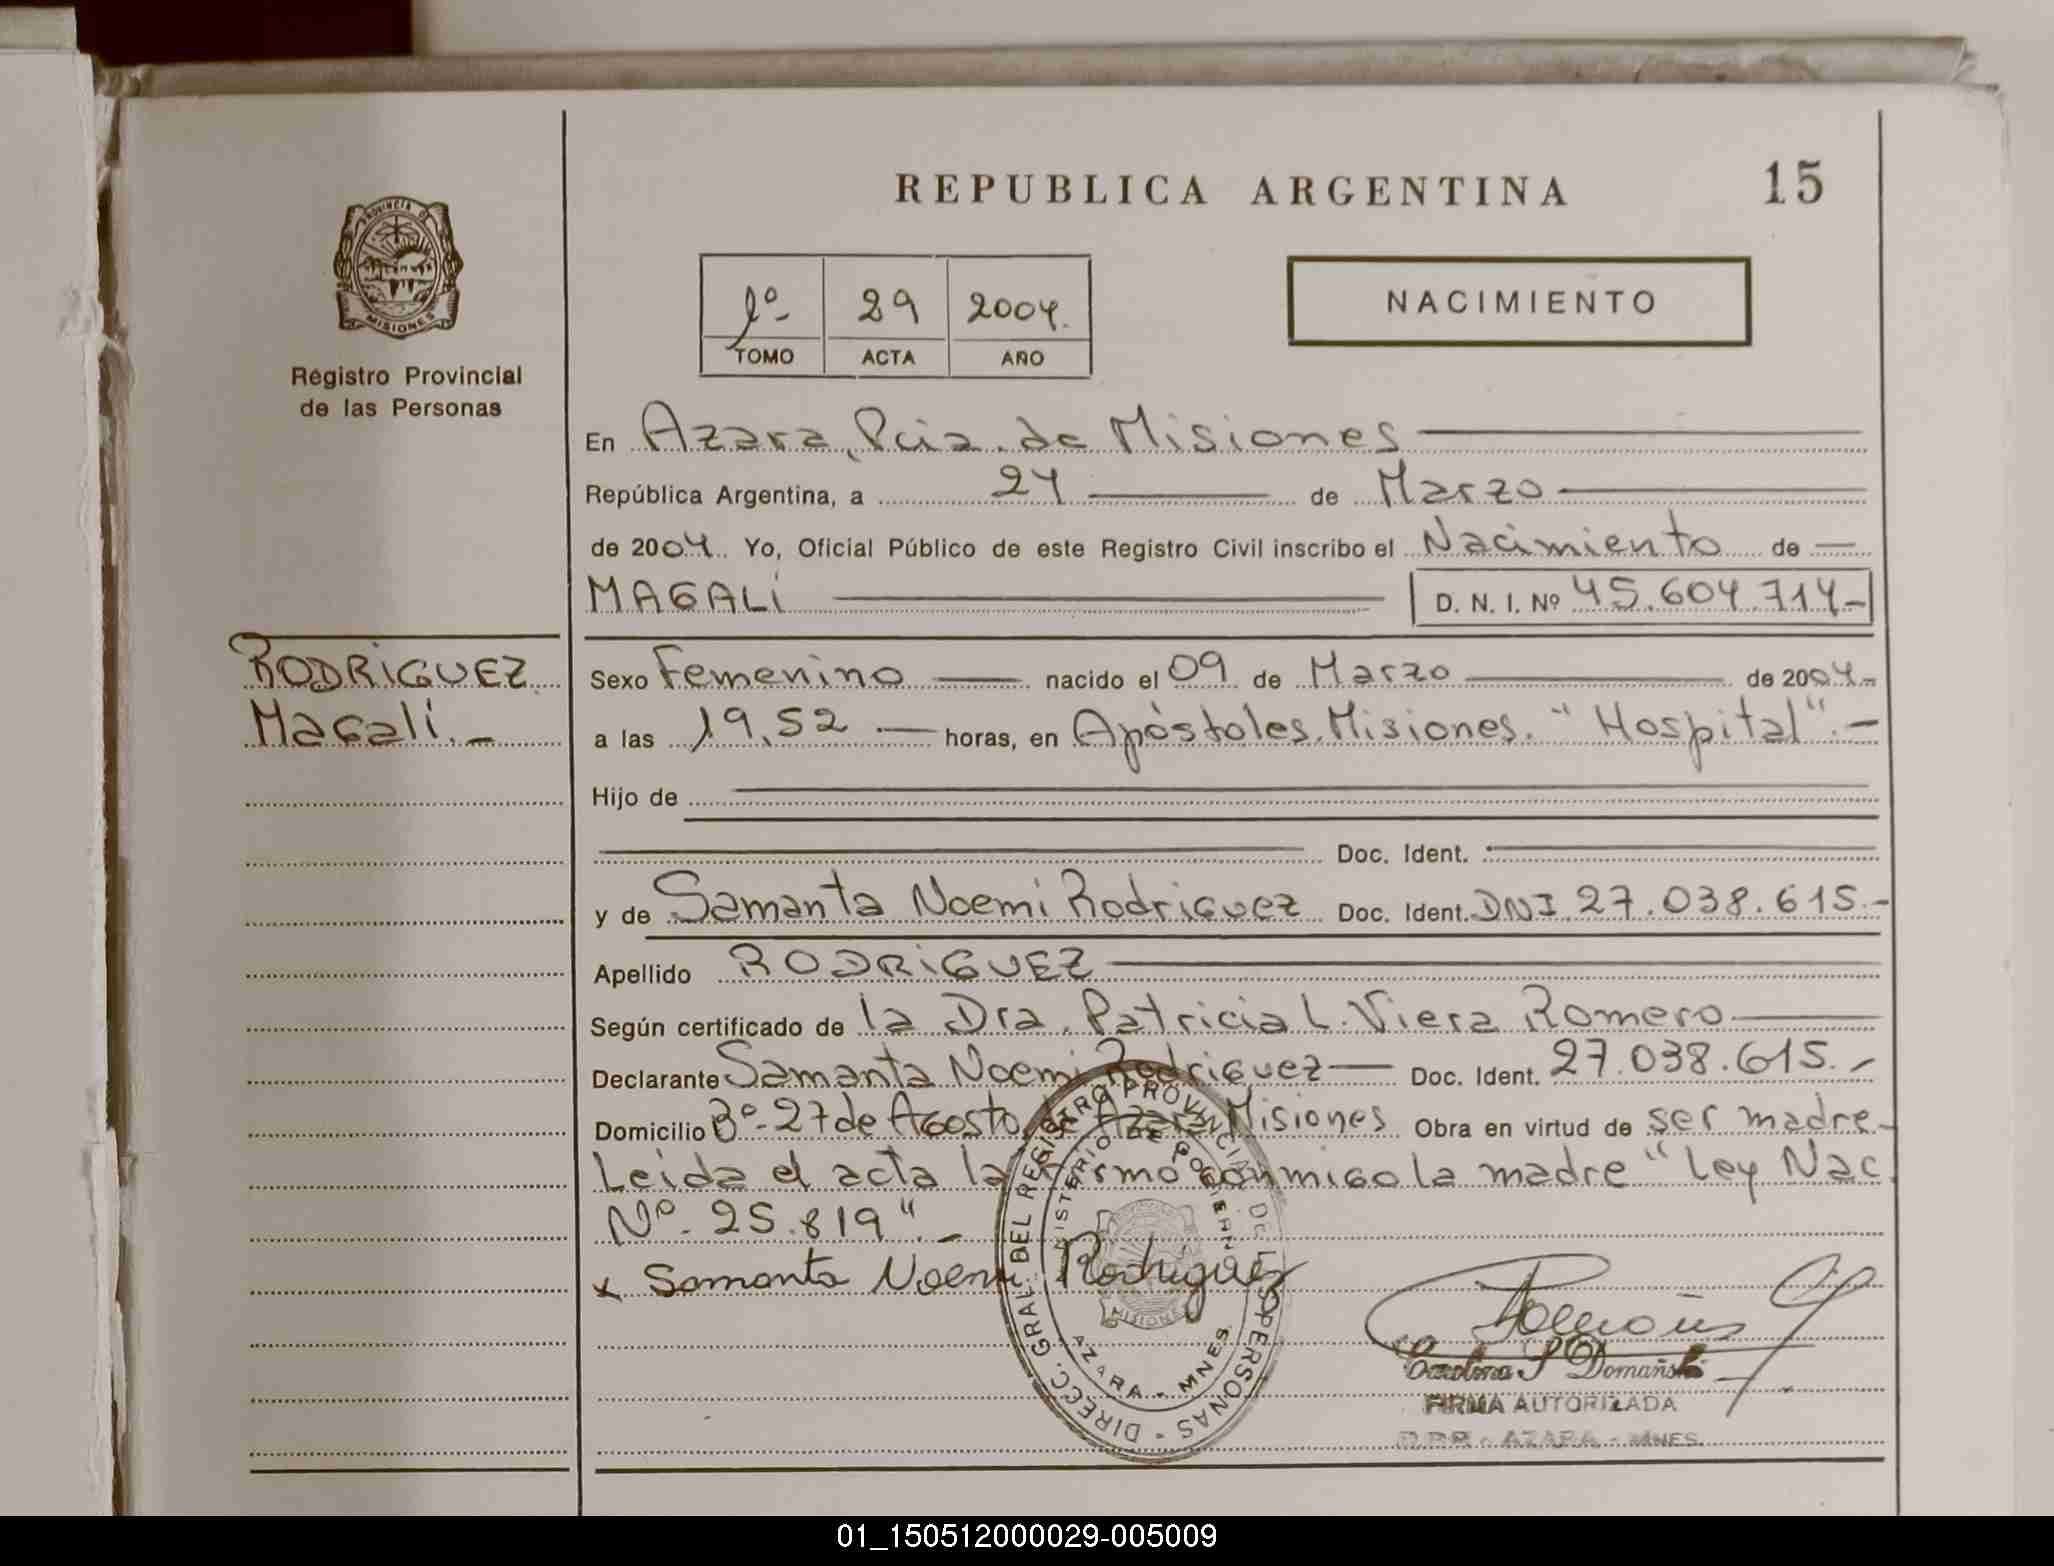 REPUBLICA ARGENTINA
15
PROVINCIA DE
MISIONES
Registro Provincial
de las Personas
1º-
29
2004.
TOMO
ACTA
AÑO
NACIMIENTO
En Azara, Pcia. de Misiones
República Argentina, a 24 de Marzo
de 2004. Yo, Oficial Público de este Registro Civil inscribo el Nacimiento de
MAGALÍ
D. N. I. Nº 45.604.714-
RODRIGUEZ
Magalí.-
Sexo Femenino nacido el 09 de Marzo de 2004.-
a las 19,52 horas, en Apóstoles, Misiones. "Hospital".-
Hijo de
Doc. Ident.
y de Samanta Noemi Rodriguez Doc. Ident. DNI 27.038.615.-
Apellido RODRIGUEZ
Según certificado de la Dra. Patricia L. Viera Romero
Declarante Samanta Noemi Rodriguez Doc. Ident. 27.038.615.-
Domicilio Bº-27 de Agosto, de Azara, Misiones Obra en virtud de ser madre-
Leida el acta la firmó conmigo la madre "Ley Nac.
Nº-25.819".-
x Samanta Noemi Rodriguez
DIRECC. GRAL. DEL REGISTRO PROVINCIAL DE LAS PERSONAS -
MINISTERIO DE GOBIERNO
MISIONES
AZARA - MNES.
S Domañski
FIRMA AUTORIZADA
AZARA - MNES.
01_150512000029-005009